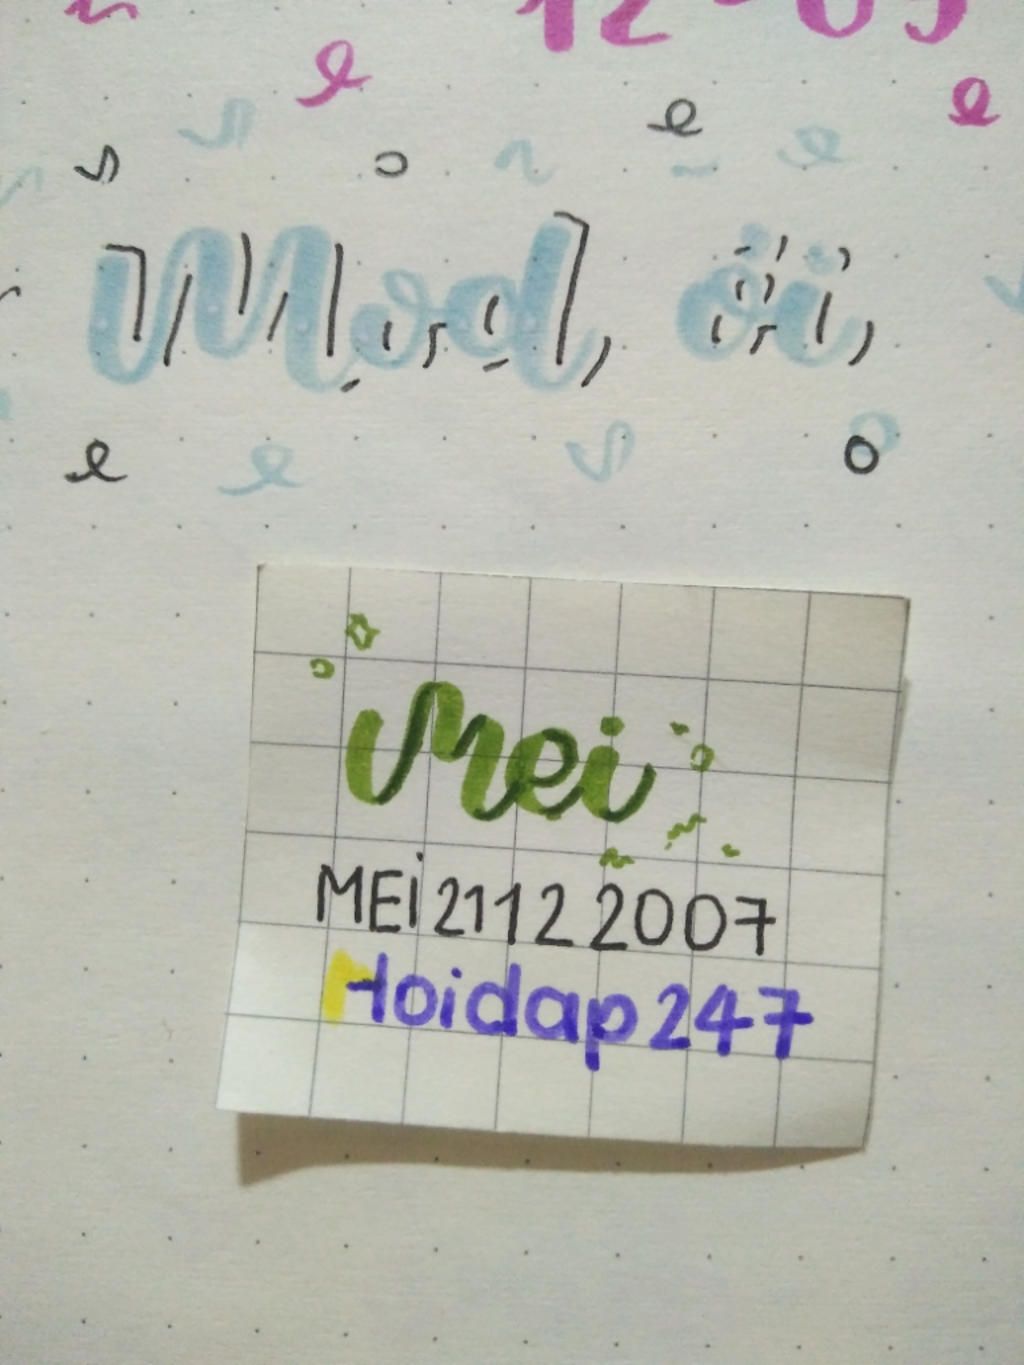 12-09
Mod, ơi,
Mei
MEi 2112 2007
Hoidap247